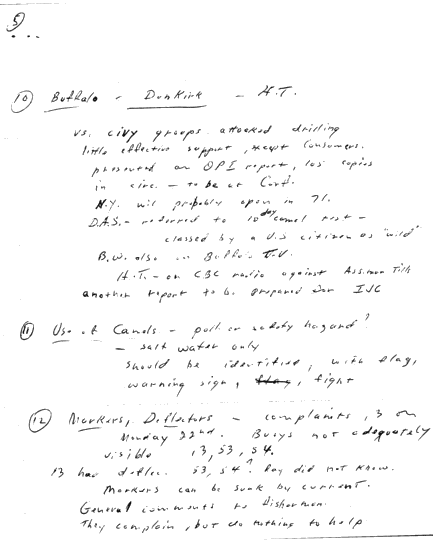 5
10 Buffalo - Dunkirk - H.T.
vs. civy groups attacked drilling
little effective support, except consumers.
presented an OPI report, 100 copies
in circ. - to be at Conf.
N.Y. will probably open in 71.
D.A.S. - referred to 10 day canal test -
classed by a U.S citizen as "wild"
B.W. also on Buffalo T.V.
H.T. - on CBC radio against
another report to be prepared for IJC
11 Use of Canals - poll. or safety hazard?
- salt water only
should be identified, with flag,
warning sign, flag, light
12 Markers, Deflectors - complaints, 3 on
Monday 22nd. Buoys not adequately
visible 13, 53, 54.
13 had deflec. 53, 54? Ray did not know.
Markers can be sunk by current.
General comments to fisherman.
They complain, but do nothing to help